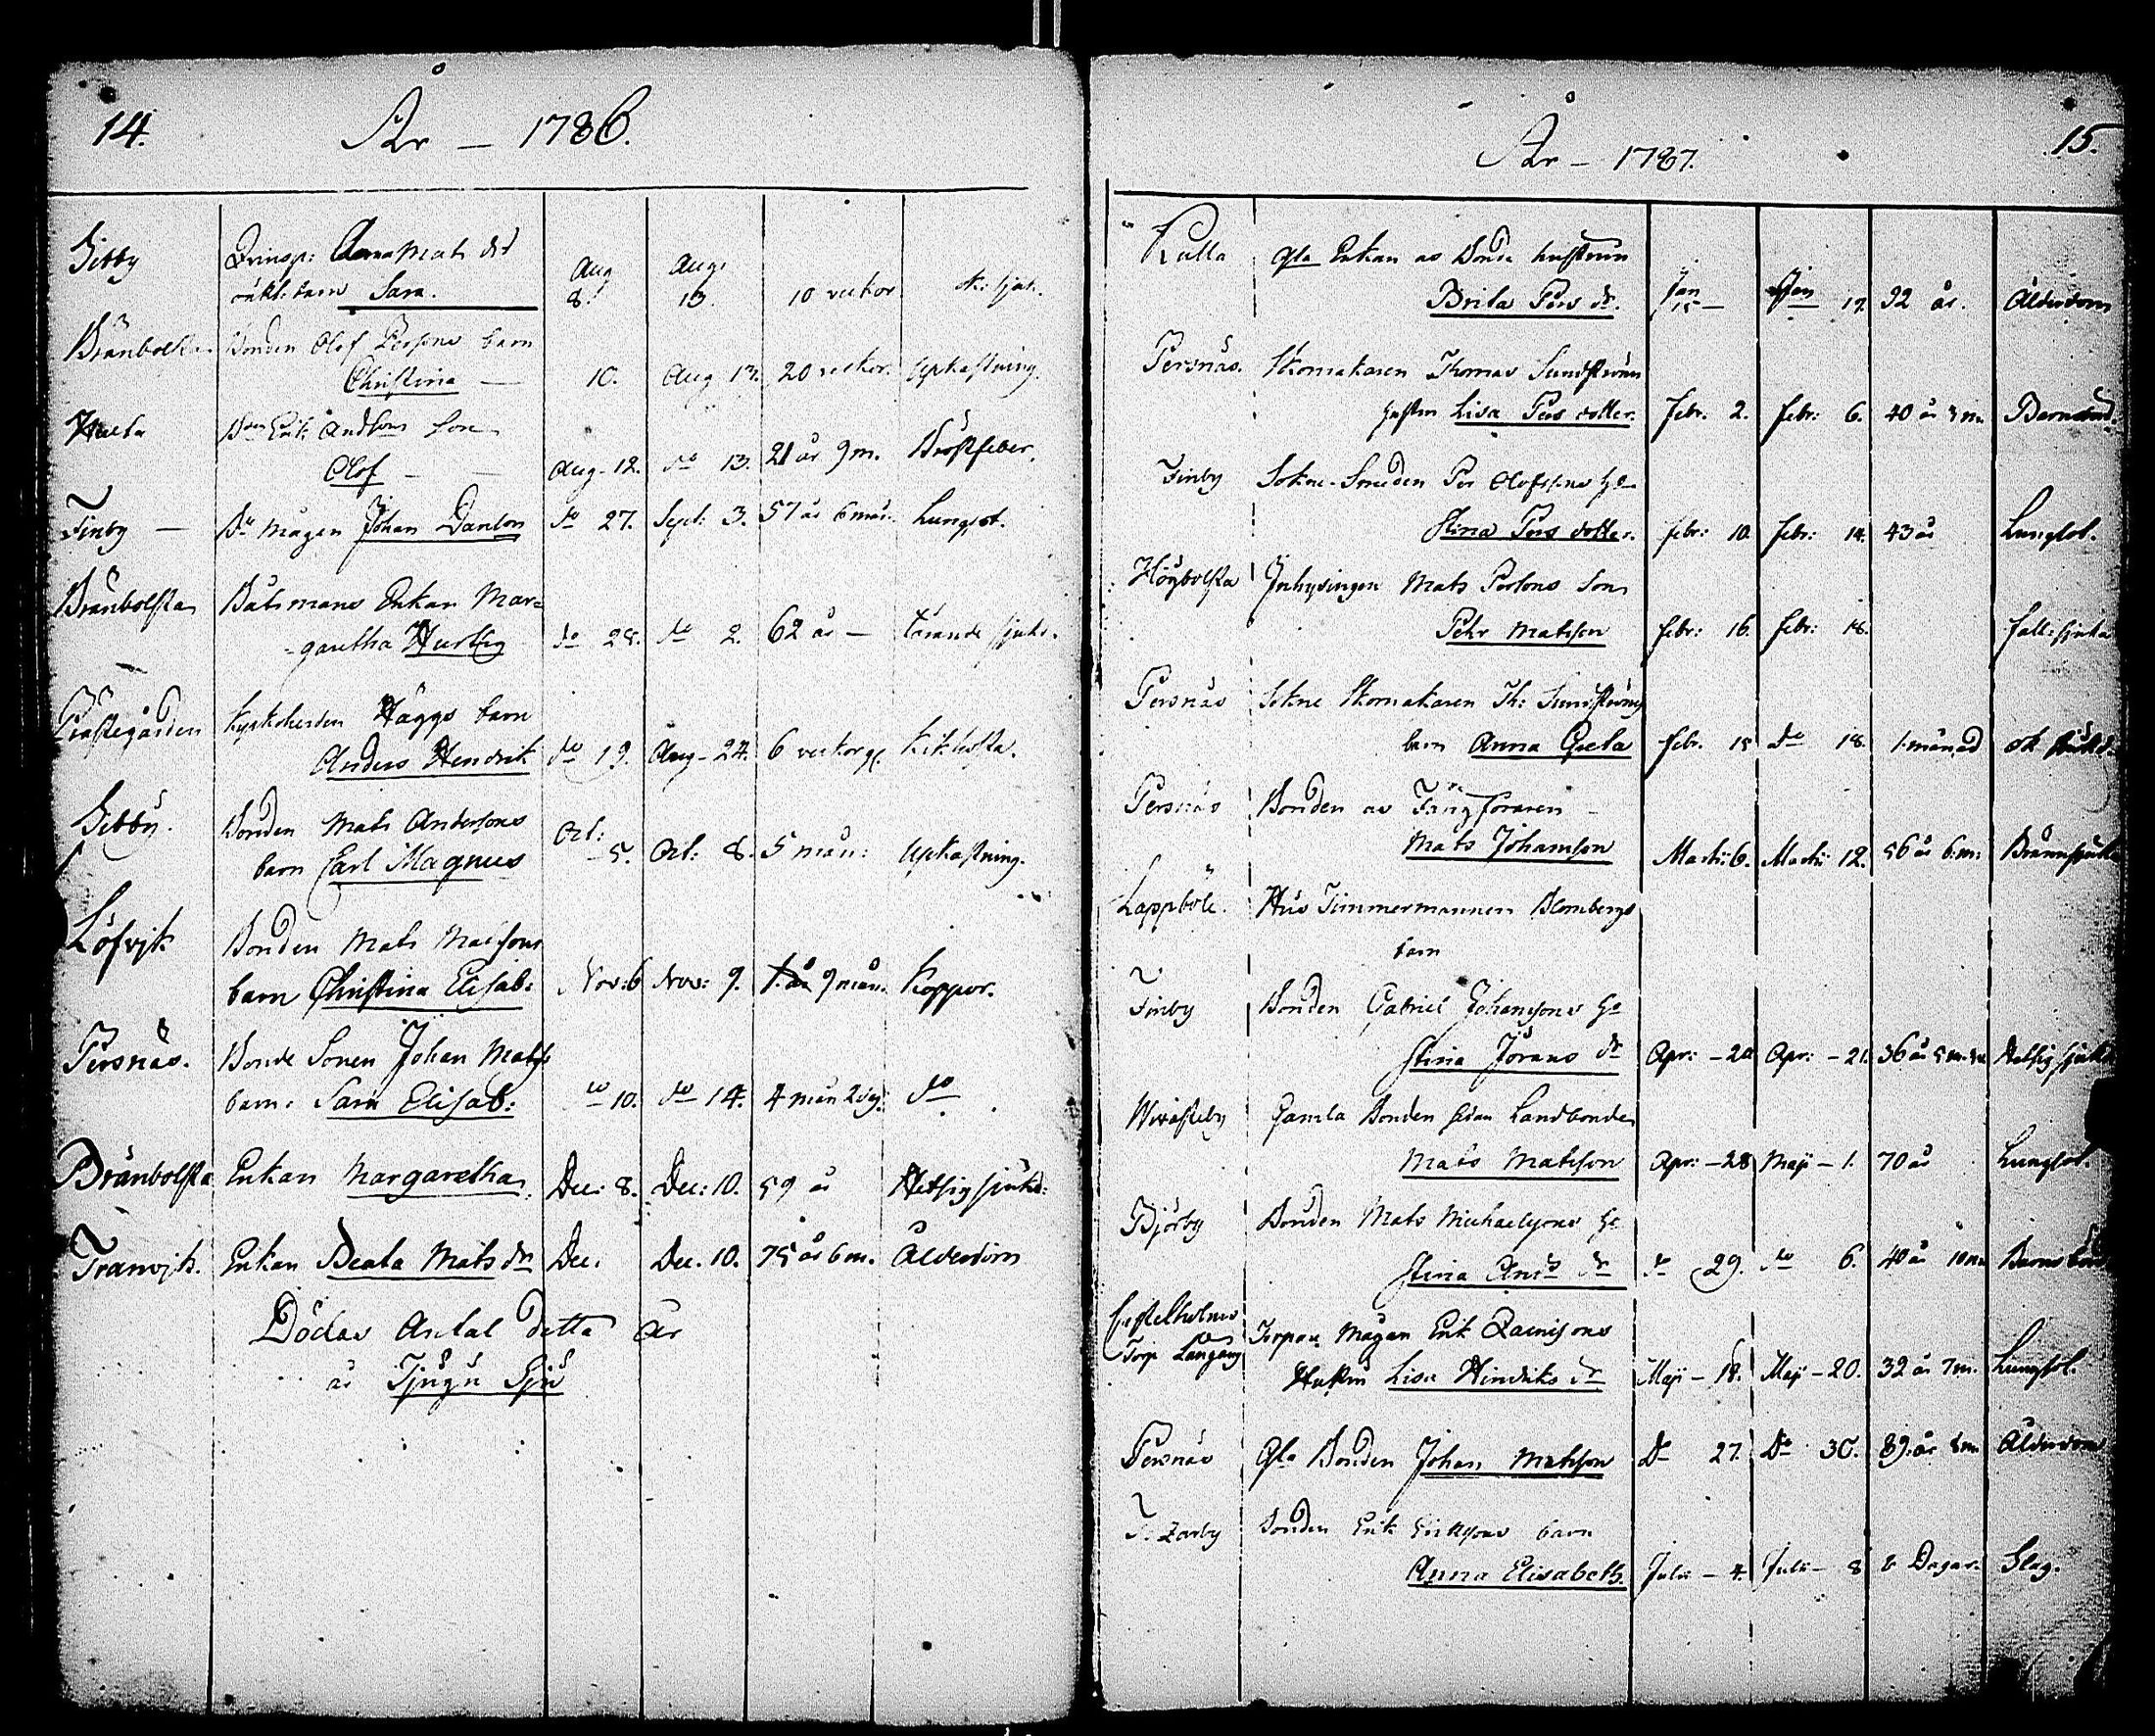 14. År — 1786.
Gibby Qvinsp: Anna Mats dr
oäkt: barn Sara. Aug 8. Aug: 13. 10 veckor. ok: sjuk.
Bränbolsta Bonden Olof Perssons barn
Christina — 10. Aug 13. 20 veckor. Upkastning.
Erik Anderssons Son
Olof — Aug. 12. do 13. 21 år 9 m. Bröstfeber.
Finby — Do Mågen Johan Danson do 27. Sept: 3. 57 år 6 mån. Lungsot.
Bränbolsta Båtsmans Enkan Mar=
garetha do 28. do 2. 62 år — tärande sjukd.
Prästegården Häggs barn
Anders Hendrik do 19. Aug. 24. 6 veckor Kikhosta.
Gibby. Bonden Mats Anderssons
barn Carl Magnus Oct: 5. Oct: 8. 5 mån: Upkastning.
Löfvjk Bonden Mats Matssons
barn Christina Elisab: Nov: 6 Nov: 9. 9 mån. Koppor.
Persnäs. Bonde Sonen Johan Mats
barn: Sara Elisab: do 10. do 14. 4 mån 2 do
Bränbolsta Enkan Margaretha Dec: 8. Dec: 10. 59 år Hetsig sjukd:
Tranvjk. Enkan Beata Mats dr Dec. Dec. 10. 75 år 6 m. Ålderdom
Dödas Antal detta år
är Tjugu Sju
År — 1787. 15.
Kulla Gla Enkan
Brita Pers dr. Jan 15 — Jan 17. 92 år. Ålderdom
Persnäs. Skomakaren Thomas Sundströms
hustru Lisa Pers dotter. Febr: 2. Febr: 6. 40 år Barnsbörd.
Finby Sokne-Smeden Per Olofssons
Stina Pers dotter. febr: 10. febr: 14. 43 år Lungsot.
Högbolsta Inhysingen Mats Persons Son
Pehr Matsson febr: 16. febr: 18. fall: sjuka
Persnäs Sokne Skomakaren Th: Sundströms
barn Anna Greta febr. 15 do 18. 1. månad ok
Persnäs Bonden
Mats Johansson Martii 6. Martii 12. 56 år 6 m: Brännsjuka
Lappböle. Hus Timmermannen Blombergs
barn
Finby Bonden Gabriel Johanssons
Stina Jörans dr Apr: — 20 Apr: — 21. 36 år Hetsig sjukd
Gamla Bonden Landbonden
Mats Matsson Apr: — 28 Maji — 1. 70 år Lungsot.
Björby Bonden Mats Michaelssons
Stina Anders dr do 29. do 6. 40 år 10 m Barnsbörd
Torp Långäng Mågen Erik
Hustru Lisa Hindriks dr Maji — 18. Maji — 20. 32 år 7 m. Lungsot.
Persnäs Gla Bonden Johan Matsson Do 27. Do 30. 89. år Ålderdom
Bonden Erik Erikssons barn
Anna Elisabeth. Julii — 4. Julii — 8 Dagar. Slag.